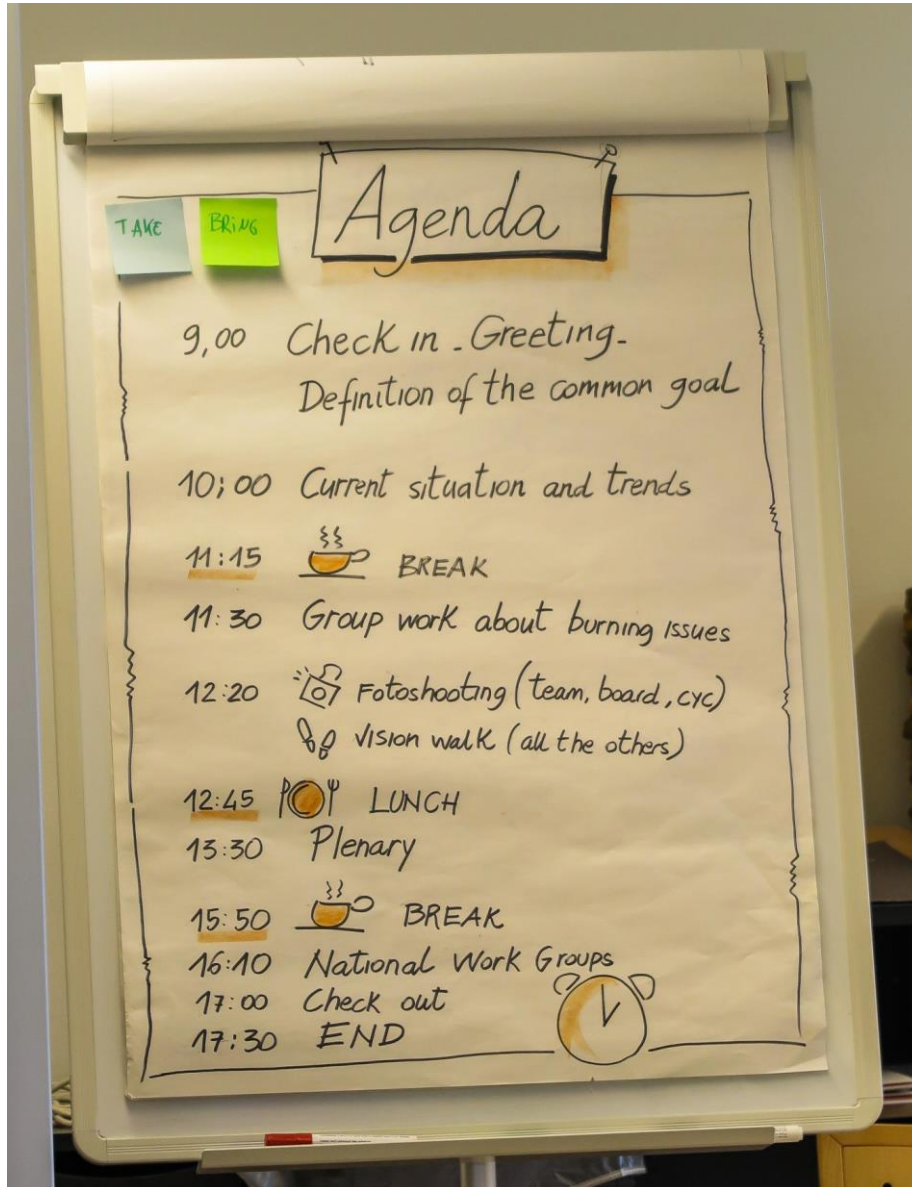 Agenda
TAKE
BRING
9,00 Check in - Greeting -
Definition of the common goal
10:00 Current situation and trends
11:15 BREAK
11:30 Group work about burning issues
12:20 Fotoshooting (team, board, cyc)
vision walk (all the others)
12:45 LUNCH
13:30 Plenary
15:50 BREAK
16:10 National Work Groups
17:00 Check out
17:30 END